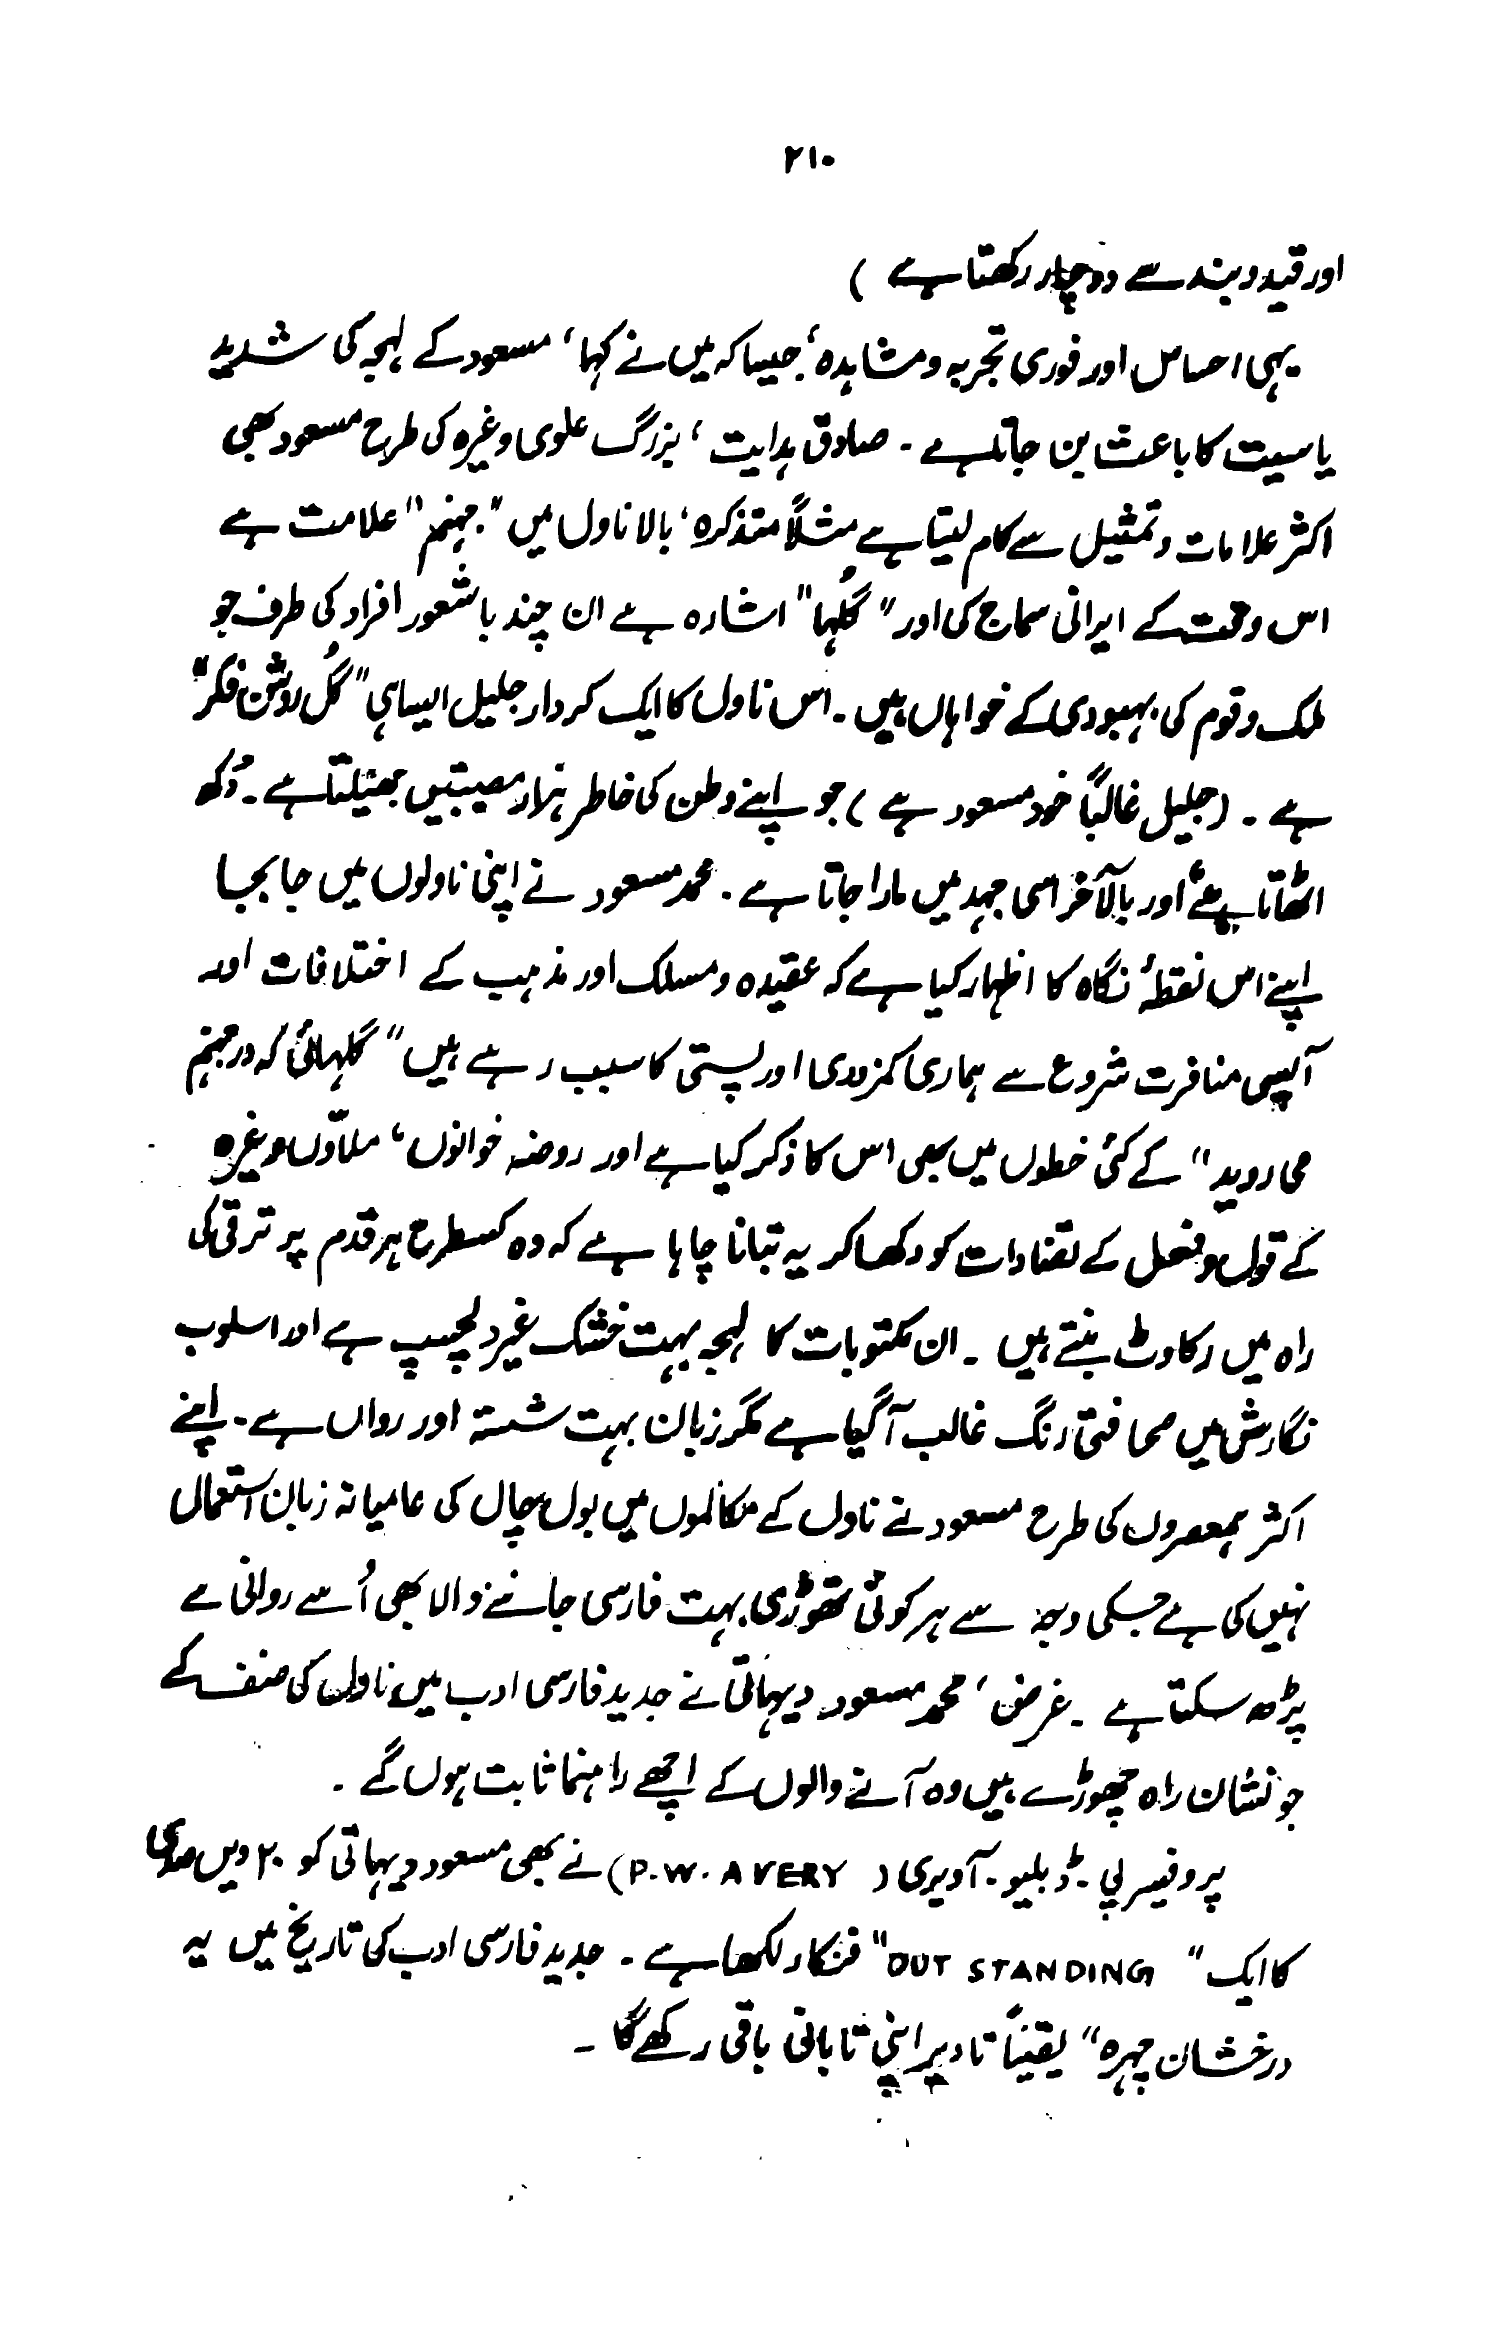 ۲۱۰
اور قید و بند سے دوچار رکھتا ہے )
یہی احساس اور فوری تجربہ و مشاہدہ، جیسا کہ میں نے کہا، مسعود کے لہجہ کی شدید
یاسیت کا باعث بن جاتا ہے ۔ صادق ہدایت، بزرگ علوی وغیرہ کی طرح مسعود بھی
اکثر علامات و تمثیل سے کام لیتا ہے مثلاً متذکرہ بالا ناول میں "جہنم" علامت ہے
اس وقت کے ایرانی سماج کی اور "گُلہا" اشارہ ہے ان چند باشعور افراد کی طرف جو
ملک و قوم کی بہبودی کے خواہاں ہیں ۔ اس ناول کا ایک کردار جلیل ایسا ہی "گُل روشن فکر"
ہے ۔ (جلیل غالباً خود مسعود ہے ) جو اپنے وطن کی خاطر ہزار مصیبتیں جھیلتا ہے ۔ دُکھ
اٹھاتا ہے اور بالآخر اسی جہد میں مارا جاتا ہے ۔ محمد مسعود نے اپنی ناولوں میں جا بجا
اپنے اس نقطۂ نگاہ کا اظہار کیا ہے کہ عقیدہ و مسلک اور مذہب کے اختلافات اور
آپسی منافرت شروع سے ہماری کمزوری اور پستی کا سبب رہے ہیں "گلہائی کہ در جہنم
می روید" کے کئی خطوں میں بھی اس کا ذکر کیا ہے اور روضہ خوانوں، ملاّؤں وغیرہ
کے قول و فعل کے تضادات کو دکھا کر یہ بتانا چاہا ہے کہ وہ کسطرح ہر قدم پر ترقی کی
راہ میں رکاوٹ بنتے ہیں ۔ ان مکتوبات کا لہجہ بہت خشک غیر دلچسپ ہے اور اسلوب
نگارش میں صحافتی رنگ غالب آگیا ہے مگر زبان بہت شستہ اور رواں ہے ۔ اپنے
اکثر ہمعصروں کی طرح مسعود نے ناول کے مکالموں میں بول چال کی عامیانہ زبان استعمال
نہیں کی ہے جسکی وجہ سے ہر کوئی تھوڑی بہت فارسی جاننے والا بھی اُسے روانی سے
پڑھ سکتا ہے ۔ غرض، محمد مسعود دیہاتی نے جدید فارسی ادب میں ناول کی صنف کے
جو نشان راہ چھوڑے ہیں وہ آنے والوں کے اچھے راہنما ثابت ہوں گے ۔
پروفیسر پی ۔ ڈبلیو ۔ آویری ( P.W. AVERY) نے بھی مسعود دیہاتی کو ۲۰ ویں صدی
کا ایک " OUT STANDING" فنکار لکھا ہے ۔ جدید فارسی ادب کی تاریخ میں یہ
درخشان چہرہ" یقیناً تا دیر اپنی تابانی باقی رکھے گا ۔